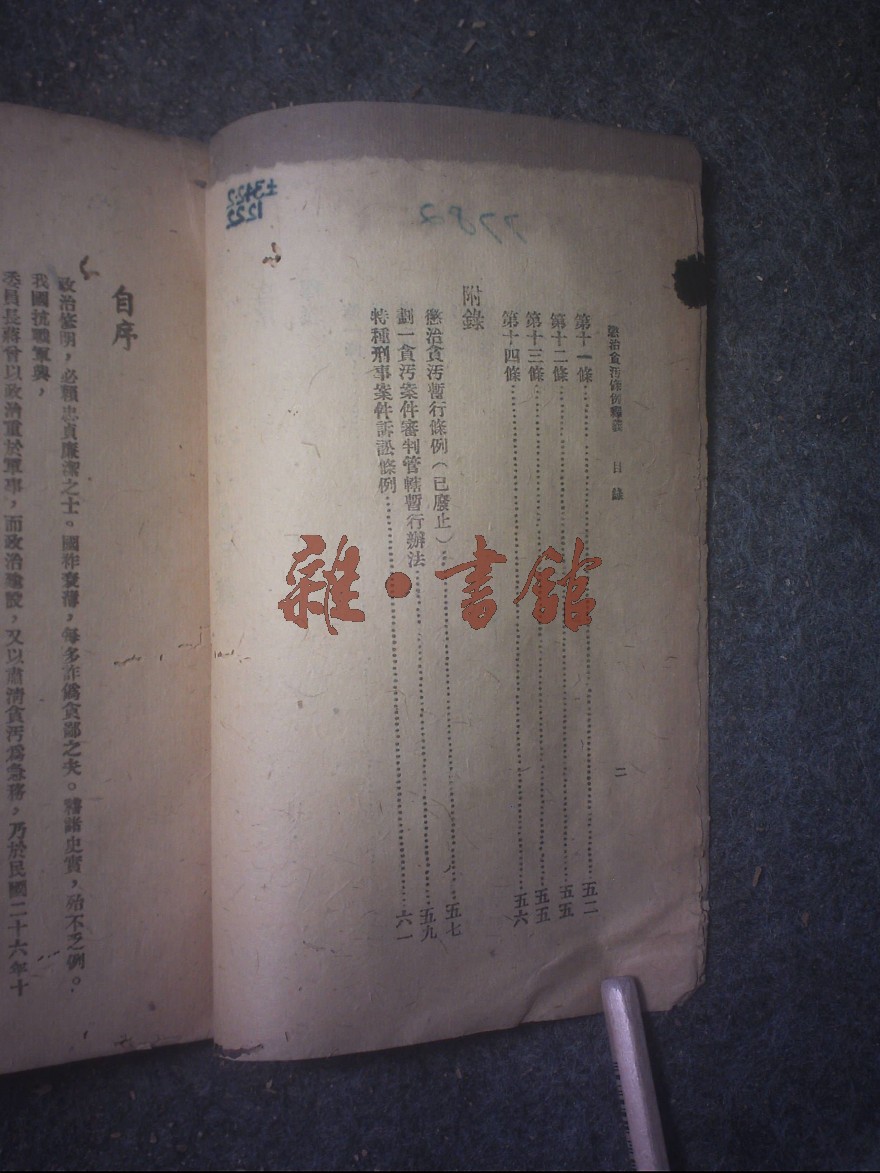 懲治貪汚條例釋義 目錄 二
第十一條 五二
第十二條 五五
第十三條 五五
第十四條 五六
附錄
懲治貪汚暫行條例(已廢止) 五七
劃一貪汚案件審判管轄暫行辦法 五九
特種刑事案件訴訟條例 六一
自序
政治修明,必賴忠貞廉潔之士。國祚衰薄,每多詐僞貪鄙之夫。稽諸史實,殆不乏例。
我國抗戰軍興,
委員長蔣曾以政治重於軍事,而政治建設,又以肅清貪汚爲急務,乃於民國二十六年十
雜·書館
7782
±342.2
1222